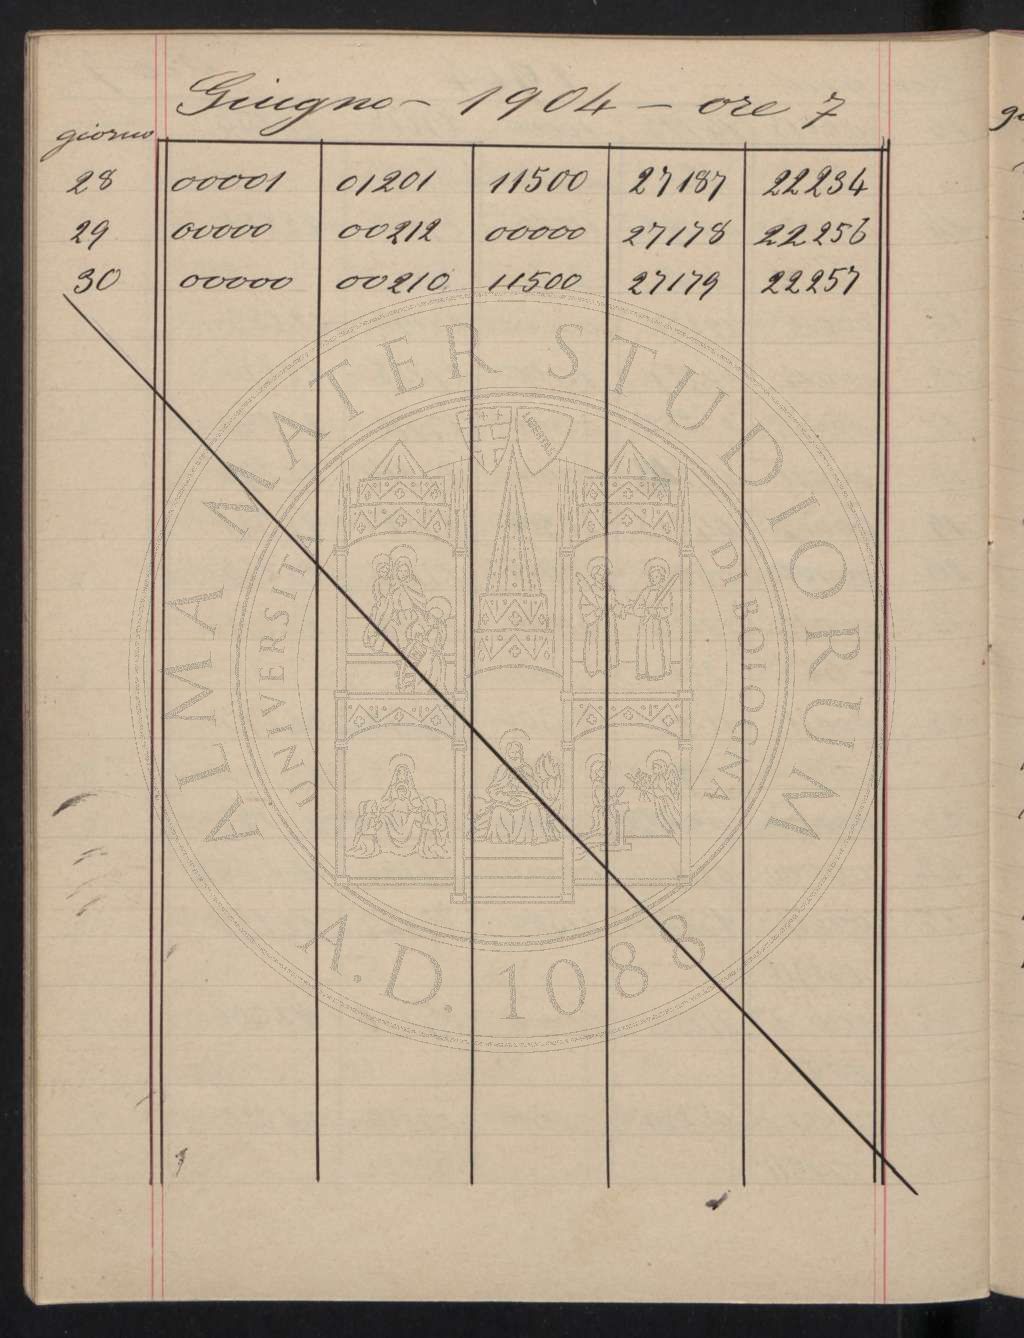 Giugno - 1904 - ore 7
giorno
28 00001 01201 11500 27187 22234
29 00000 00212 00000 27178 22256
30 00000 00210 11500 27179 22257
ALMA MATER STUDIORUM
A.D. 1088
UNIVERSITA DI BOLOGNA
LIBERTAS